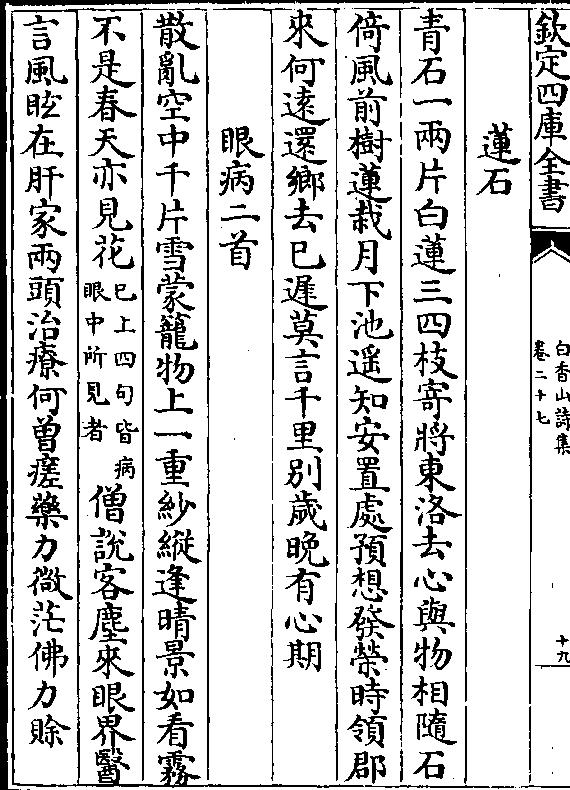 欽定四庫全書
白香山詩集
卷二十七
十九
蓮石
青石一兩片白蓮三四枝寄將東洛去心與物相隨石
倚風前樹蓮栽月下池遥知安置處預想發榮時領郡
來何逺還鄉去已遲莫言千里别歲晚有心期
眼病二首
散亂空中千片雪蒙籠物上一重紗縱逢晴景如看霧
不是春天亦見花已上四句皆病眼中所見者僧說客塵來眼界醫
言風眩在肝家兩頭治療何曾瘥藥力微茫佛力賒